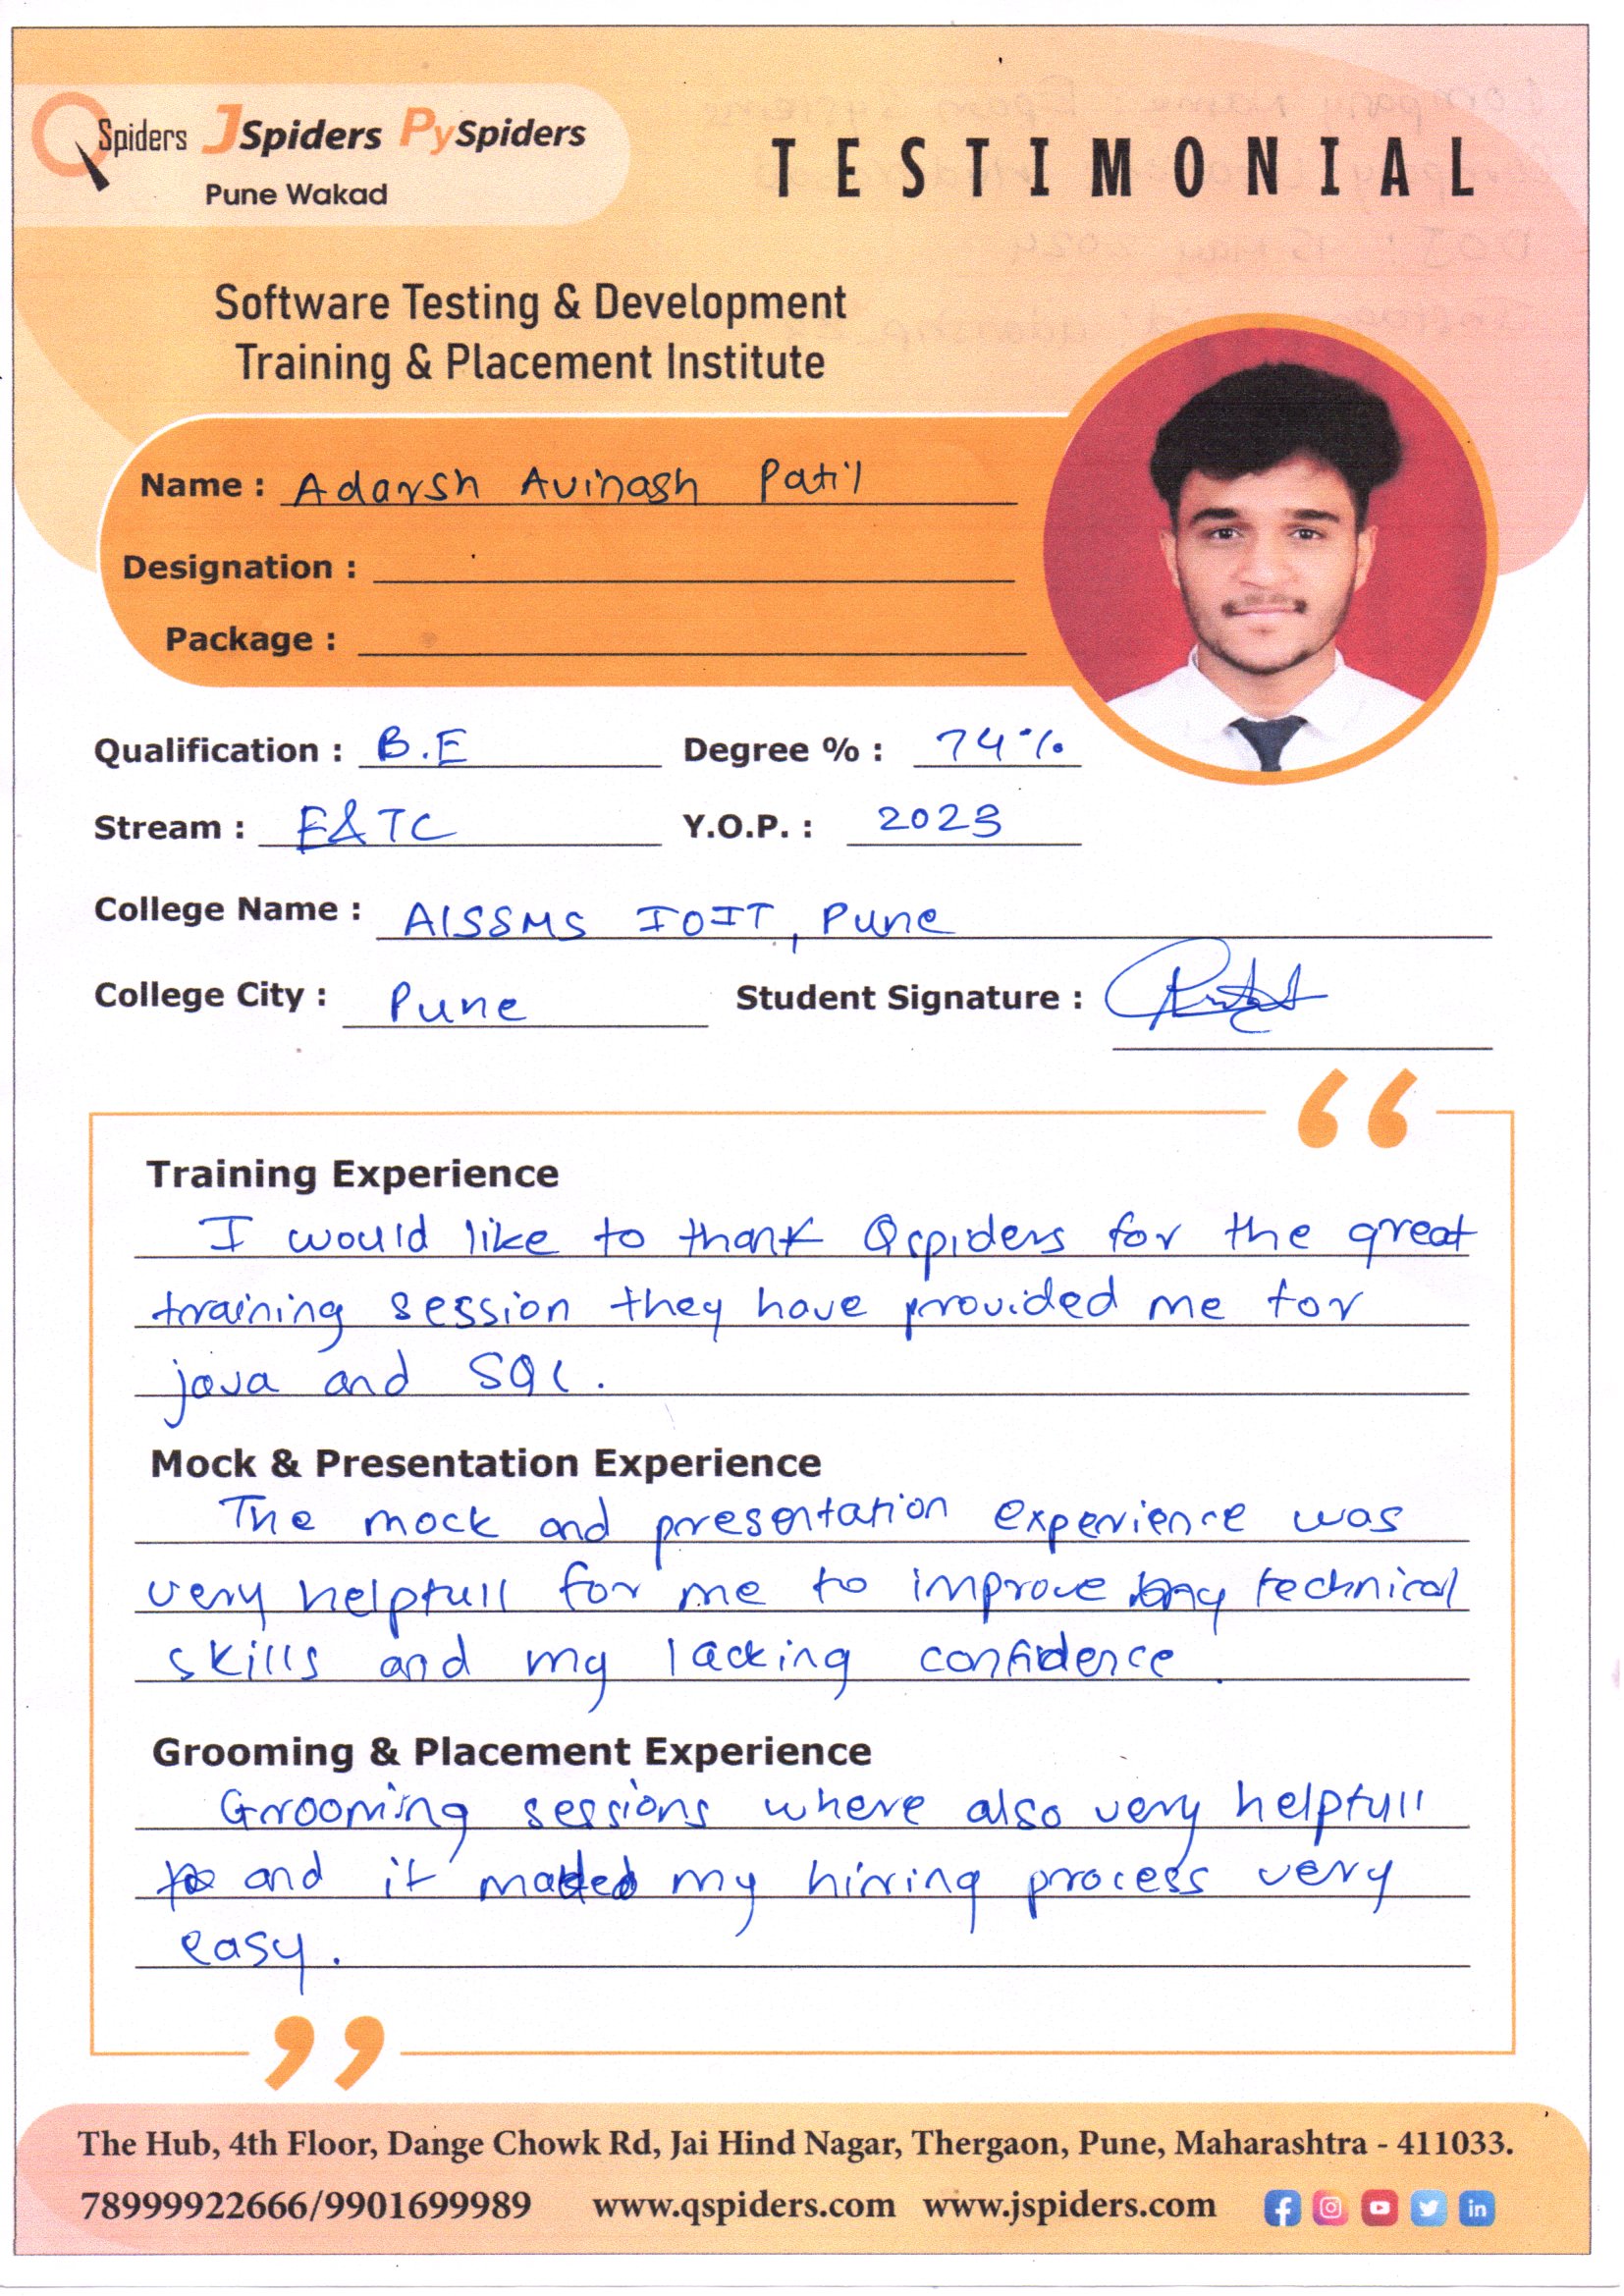 QSpiders JSpiders PySpiders
Pune Wakad
TESTIMONIAL
Software Testing & Development
Training & Placement Institute
Name : Adarsh Avinash Patil
Designation :
Package :
Qualification : B.E Degree % : 74%
Stream : E&TC Y.O.P. : 2023
College Name : AISSMS IOIT, Pune
College City : Pune Student Signature :
Training Experience
I would like to thank Qspiders for the great
training session they have provided me for
java and SQL.
Mock & Presentation Experience
The mock and presentation experience was
very helpfull for me to improve my technical
skills and my lacking confidence.
Grooming & Placement Experience
Grooming sessions where also very helpfull
and it maded my hirring process very
easy.
The Hub, 4th Floor, Dange Chowk Rd, Jai Hind Nagar, Thergaon, Pune, Maharashtra - 411033.
78999922666/9901699989 www.qspiders.com www.jspiders.com